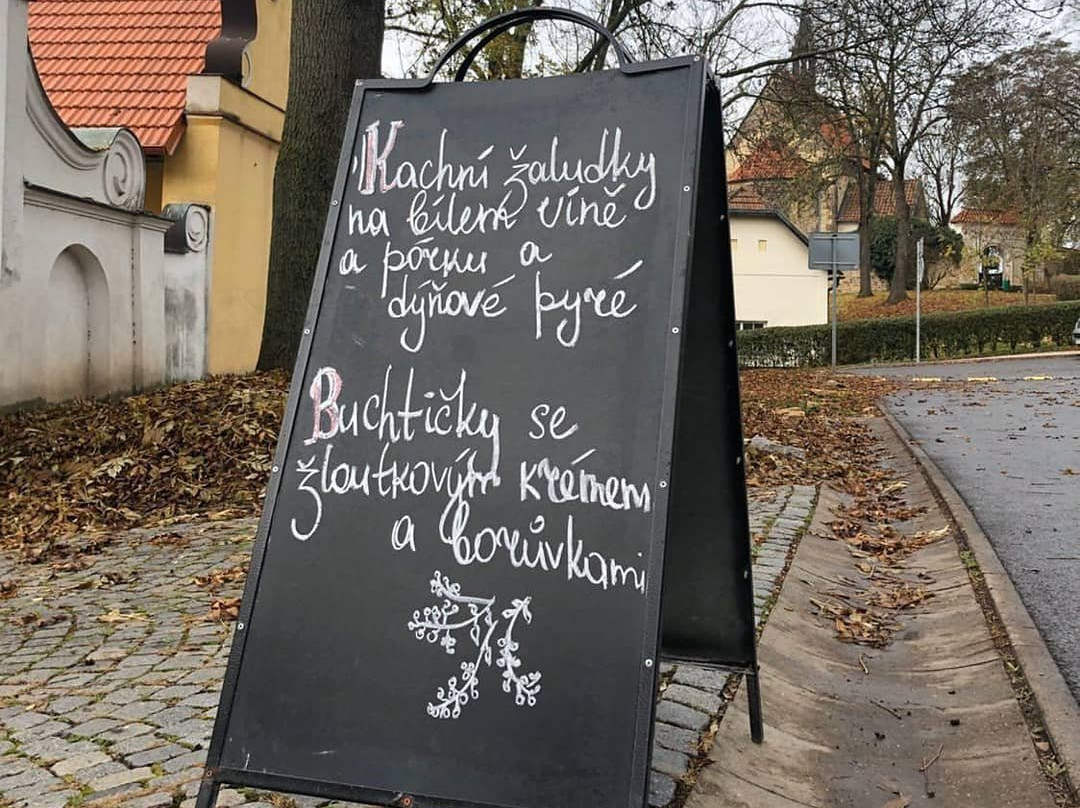 Kachní žaludky
na bílem víně
a pórku a
dýňové pyré
Buchtičky se
žloutkovým krémem
a borůvkami